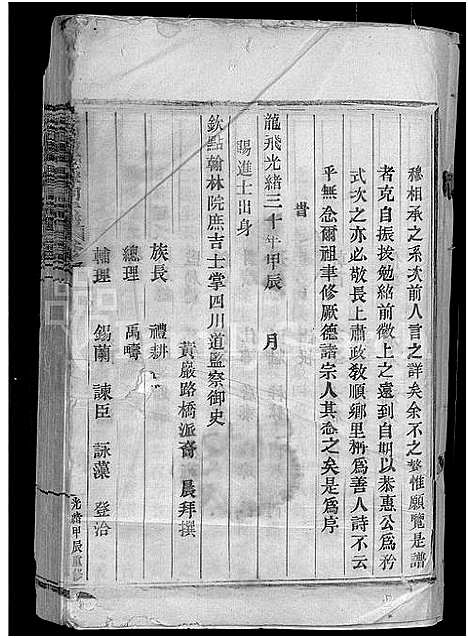 穆相承之系次前人言之詳矣余不之贅惟願覽是譜
者克自振拔勉紹前徽上之遠到自期以恭惠公為矜
式次之亦必敬長上肅政教順鄉里稱為善人詩不云
乎無念爾祖聿修厥德諸宗人其念之矣是為序
旹
龍飛光緒三十年甲辰 月
賜進士出身
欽點翰林院庶吉士掌四川道監察御史
黃巖路橋派 晨拜撰
族長 禮耕
總理 禹疇
輔理 錫蘭 諫臣 詠藻 登洽
光緒甲辰重修